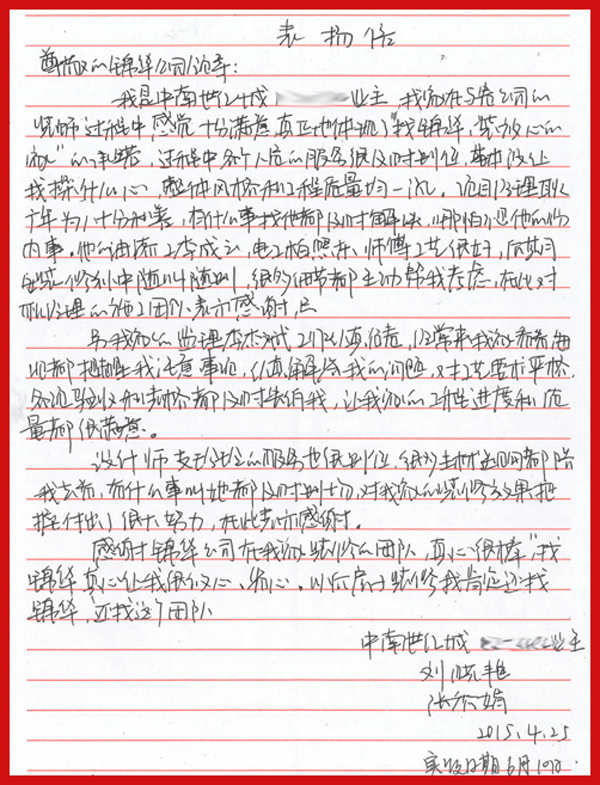 表扬信
尊敬的锦华公司领导:
我是中南世纪城 业主 我家在贵公司的
装饰过程中感觉十分满意真正地体现了"找锦华,装放心的
家"的承诺,过程中各个人员的服务很及时到位,基本没让
我操什么心,整体风格和工程质量均一流。项目经理耿
年为人十分和善,有什么事找他都及时解决,哪怕不是他的份
内事。他的油漆工李成云,电工柏照东师傅工艺很好,后期
的装修中随叫随到,很多细节都主动帮我考虑,在此对
耿经理的施工团队表示感谢,
另我家的监理李 斌工作认真负责,经常来我家看看
现都提醒我注意事项,认真解答我的问题,对工艺要求严格,
各项验收和表格都及时发给我,让我家的工程进度和质
量都很满意。
设计师 的服务也很到位,很多主材选购都陪
我去看,有什么事叫她都及时到场,对我家的装修效果把
握付出了很大努力,在此表示感谢。
感谢锦华公司在我家装修的团队,真心很棒"找
锦华"真心让我很放心、省心。以后房子装修我肯定还找
锦华,还找这个团队
中南世纪城 业主
刘晓艳
张 娟
2015.4.25
实际日期6月10日